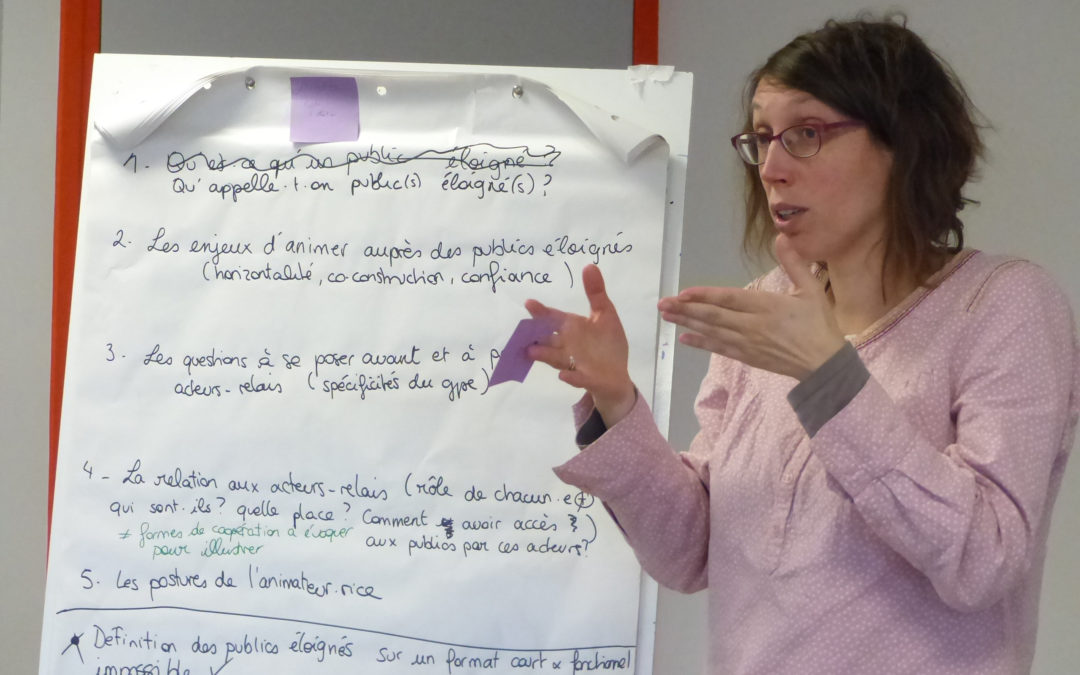 1. Qu'est ce qu'un public éloigné ?
Qu'appelle.t.on public(s) éloigné(s) ?
2. Les enjeux d'animer auprès des publics éloignés
(horizontalité, co-construction, confiance )
3. Les questions à se poser avant et à
acteurs-relais (spécificités du gpe)
4 - La relation aux acteurs-relais (rôle de chacun.e
qui sont.ils ? quelle place ? Comment avoir accès )
≠ formes de coopération à évoquer
aux publics par ces acteurs ?
pour illustrer
5. Les postures de l'animateur.rice
Définition des publics éloignés sur un format court
impossible